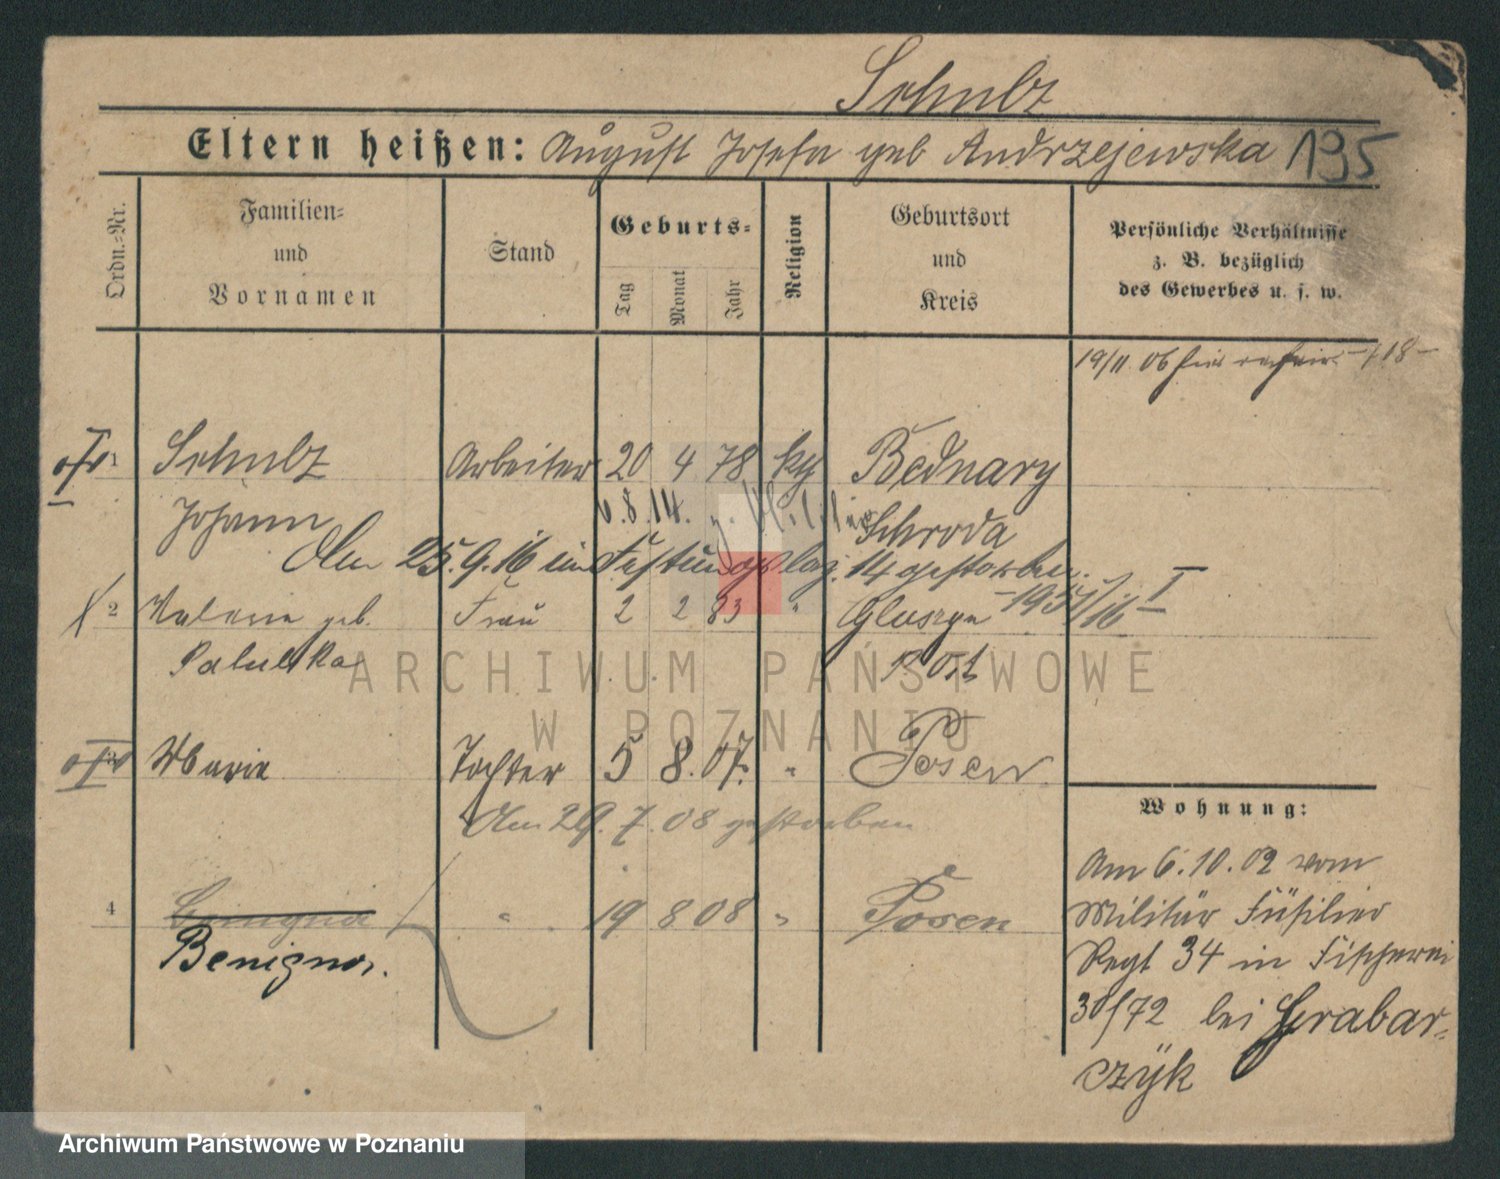 Schulz
Eltern heißen: August Josefa geb Andrzejewska 195
Ordn.=Nr.
Familien=
und
Vornamen
Stand
Geburts=
Tag
Monat
Jahr
Religion
Geburtsort
und
Kreis
Persönliche Verhältnisse
z. B. bezüglich
des Gewerbes u. s. w.
19/11 06
1 Schulz Arbeiter 20 4 78 kg Bednary
Johann 6.8.14. Schroda
Am 25.9.16 im Festungslaz. 14 gestorben.
2 Valerie geb. Frau 2 2 83 " Gluszyn
P. Ost
3 Marie Tochter 5 8. 07. " Posen
Am 29.7.08 gestorben
4 Benigna " 19 8 08 " Posen
Benigna.
Wohnung:
Am 6.10.02 vom
Militär Füsilier
Regt 34 in Fischerei
30/72 bei Grabar-
czÿk
ARCHIWUM PAŃSTWOWE
W POZNANIU
Archiwum Państwowe w Poznaniu